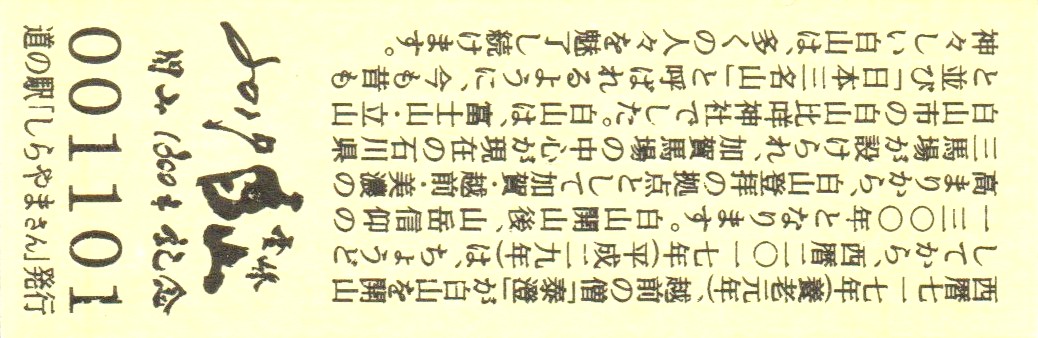 西暦七一七年(養老元年)、越前の僧「泰澄」が白山を開山
してから、西暦二〇一七年(平成二九年)は、ちょうど
一三〇〇年となります。白山開山後、山岳信仰の
高まりから、白山登拝の拠点として加賀・越前・美濃の
三馬場が設けられ、加賀馬場の中心が現在の石川県
白山市の白山比咩神社でした。白山は、富士山・立山
と並び「日本三名山」と呼ばれるように、今も昔も
神々しい白山は、多くの人々を魅了し続けます。
2017
霊峰
白山
開山1300年記念
001101
道の駅「しらやまさん」発行